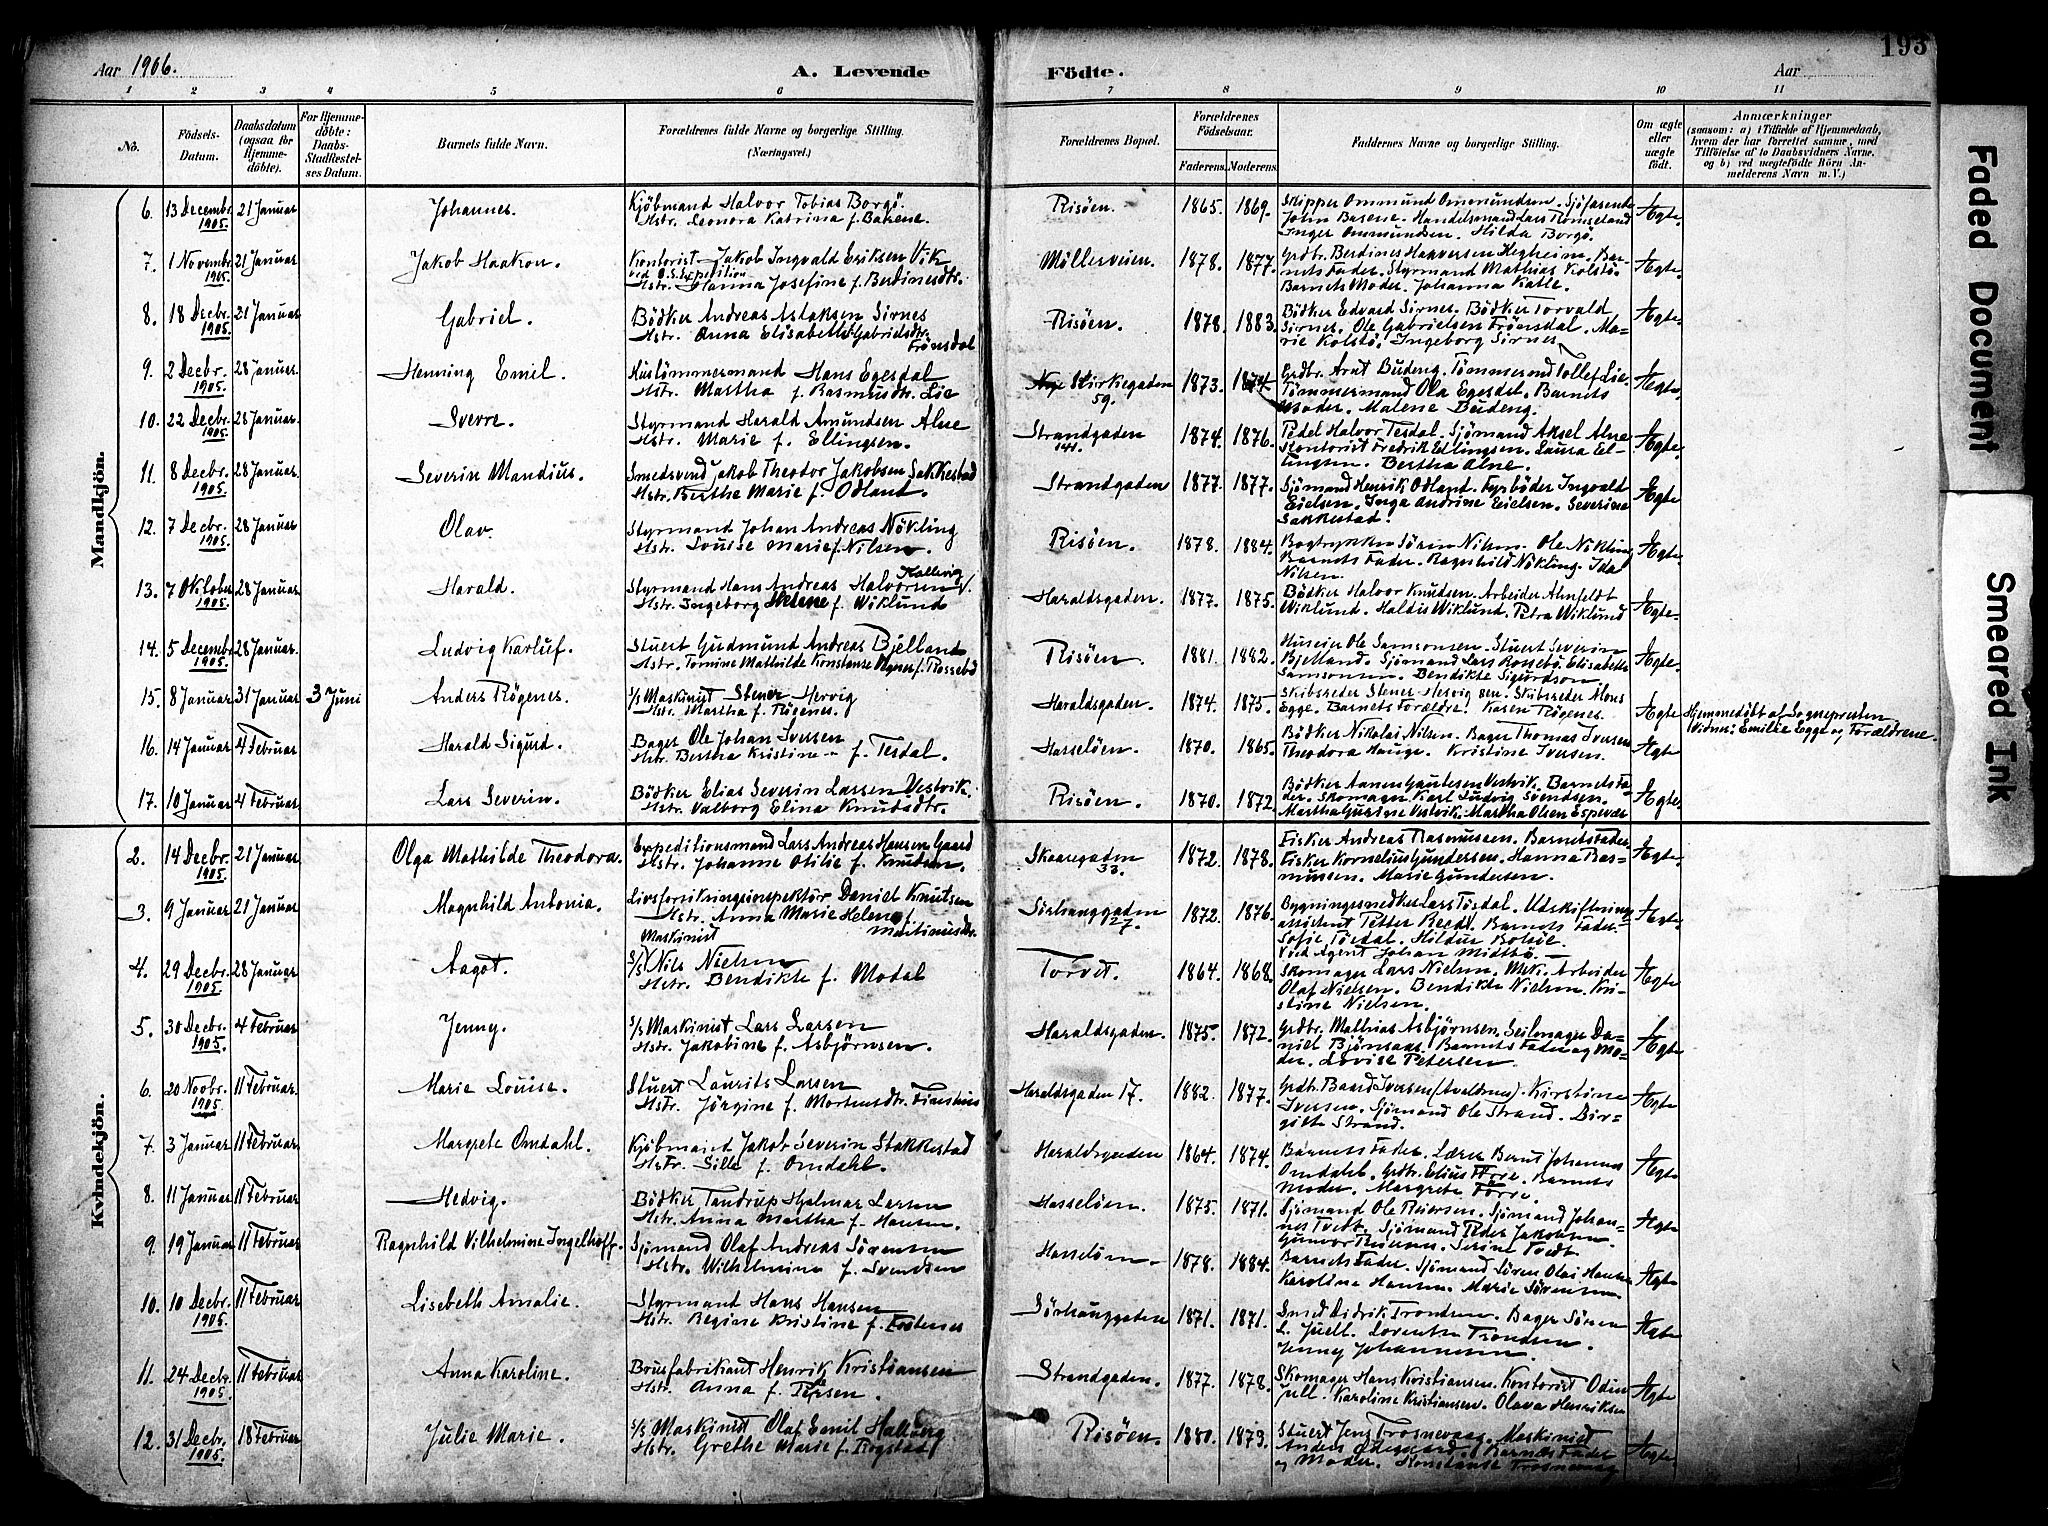 193
Aar 1906.
A. Levende Födte.
Aar
1 2 3 4 5 6 7 8 9 10 11
No.
Födsels-Datum.
Daabsdatum (ogsaa for Hjemmedöbte).
For Hjemmedöbte: Daabs-Stadfæstelses Datum.
Barnets fulde Navn.
Forældrenes fulde Navne og borgerlige Stilling. (Næringsvei.)
Forældrenes Bopæl.
Forældrenes Födselsaar.
Faderens. Moderens.
Faddernes Navne og borgerlige Stilling.
Om ægte eller uægte födt.
Anmærkninger
(saasom: a) i Tilfælde af Hjemmedaab, hvem der har forrettet samme, med Tilföielse af to Daabsvidners Navne, og b) ved uægtefödte Börn Anmelderens Navn m. V.)
Mandkjön.
6. 13 Decembr. 1905. 21 Januar Johannes.
Kjöbmand Halvor Tobias Borgö.
Hstr. Leonora Katrina f. Bakene.
Risöen. 1865. 1869.
Skipper Ommund Ommundsen. Sjöfarende
John Basene. Handelsmand Lars Romseland
Inger Ommundsen. Hilda Borgö.
Ægte.
7. 1 Novembr. 1905. 21 Januar Jakob Haakon.
Kontorist Jakob Ingvald Eriksen Vik
ved D.S. Expedition
Hstr. Hanna Josefine f. Berdinesdtr.
Möllerveien. 1878. 1877.
Grdbr. Berdines Haaversen Hegheim. Barnets Fader. Styrmand Mathias Kolstö.
Barnets Moder. Johanna Katle.
Ægte.
8. 18 Decbr. 1905. 21 Januar Gabriel.
Bödker Andreas Aslaksen Sirnes
Hstr. Anna Elisabeth Gabrielsdtr.
Frönsdal
Risöen. 1878. 1883.
Bödker Edvard Sirnes. Bödker Torvald
Sirnes. Ole Gabrielsen Frönsdal. Marie Kolstö. Ingeborg Sirnes
Ægte.
9. 2 Decbr. 1905. 28 Januar. Henning Emil.
Hustömmermand Hans Egesdal
Hstr. Martha f. Rasmusdtr. Lie
Nye Kirkegaden 59. 1873. 1874
Grdbr. Arnt Budeng. Tömmermd Tollef Lie
Tömmermand Ola Egesdal. Barnets
Moder. Malene Budeng.
Ægte.
10. 22 Decbr. 1905. 28 Januar. Sverre.
Styrmand Harald Amundsen Alne
Hstr. Marie f. Ellingsen.
Strandgaden 141. 1874. 1876.
Pedel Halvor Tesdal. Sjömand Aksel Alne
Kontorist Fredrik Ellingsen. Laura Ellingsen. Bertha Alne.
Ægte.
11. 8 Decbr. 1905. 28 Januar. Severin Mandius.
Smedsvend Jakob Theodor Jakobsen Sakkestad
Hstr. Bertha Marie f. Odland.
Strandgaden 1877. 1877.
Sjömand Henrik Odland. Fyrböder Ingvald
Eielsen. Inga Andrine Eielsen. Severine
Sakkestad.
Ægte
12. 7 Decbr. 1905. 28 Januar Olav.
Styrmand Johan Andreas Nökling
Hstr. Louise Marie f. Nilsen.
Risöen. 1878. 1884.
Bogtrykker Sörin Nilsen. Ole Nökling
Barnets Fader. Ragnhild Nökling. Ida
Nilsen.
Ægte.
13. 7 Oktober 1905. 28 Januar. Harald.
Styrmand Hans Andreas Halvorsen Kallevig
Hstr. Ingeborg Helene f. Wiklund
Haraldsgaden. 1877. 1875.
Bödker Halvor Knudsen. Arbeider Ahnfeldt
Wiklund. Haldis Wiklund. Petra Wiklund
Ægte.
14. 5 Decembr. 1905. 28 Januar. Ludvig Karluf.
Stuert Gudmund Andreas Bjelland
Hstr. Tomine Mathilde Konstanse Agnes f. Rossebö
Risöen. 1881. 1882.
Huseier Ole Samsonsen. Stuert Severin
Bjelland. Sjömand Lars Rossebö. Elisabeth
Samsonsen. Bendikte Sigurdson.
Ægte.
15. 8 Januar 31 Januar 3 Juni Anders Rögenes.
S/S Maskinist Stener Hervig
Hstr. Martha f. Rögenes.
Haraldsgaden. 1874. 1875.
Skibsreder Stener Hervig sen. Skibsreder Mons
Egge. Barnets Forældre. Karen Rögenes.
Ægte
Hjemmedöbt af Sognepresten
Vidner: Emilie Egge og Forældrene.
16. 14 Januar 4 Februar Harald Sigurd.
Bager Ole Johan Iversen
Hstr. Bertha Kristine f. Tesdal.
Hasselöen. 1870. 1865.
Bödker Nikolai Nilsen. Bager Thomas Iversen
Theodora Hauge. Kristine Iversen.
Ægte
17. 10 Januar 4 Februar Lars Severin.
Bödker Elias Severin Larsen Vestvik.
Hstr. Valborg Elina Knutsdtr.
Risöen. 1870. 1872.
Bödker Aanen Gautesen Vestvik. Barnets Fader. Skomager Karl Ludvig Svendsen.
Martha Gurine Vestvik. Martha Olsen Espevær
Ægte
Kvindekjön.
2. 14 Decbr. 1905. 21 Januar Olga Mathilde Theodora.
Expeditionsmand Lars Andreas Hansen Gaard
Hstr. Johanne Otilie f. Knudsen.
Skaaregaden 33. 1872. 1878.
Fisker Andreas Rasmussen. Barnets Fader.
Fisker Kornelius Gundersen. Hanna Rasmussen. Marie Gundersen.
Ægte.
3. 9 Januar 21 Januar Magnhild Antonia.
Livsforsikringsinspektör Daniel Knutsen
Hstr. Anna Marie Helene f.
Martinusdtr.
Sörhauggaden 127. 1872. 1876.
Bygningssnedker Lars Tösdal. Udskiftningsassistent Petter Reed. Barnets Fader.
Sofie Tösdal. Hildur
Ved Agent Johan Midtbö.
Ægte.
4. 29 Decbr. 1905. 28 Januar Aagot.
Maskinist
S/S Nils Nielsen
Hstr. Bendikte f. Modal
Torvet. 1864. 1868.
Skomager Lars Nielsen. Mek. Arbeider
Olaf Nielsen. Bendikte Nielsen. Kristine Nielsen.
Ægte
5. 30 Decbr. 1905. 4 Februar Jenny.
S/S Maskinist Lars Larsen
Hstr. Jakobine f. Asbjörnsen.
Haraldsgaden. 1875. 1872.
Grdbr. Mathias Asbjörnsen. Seilmager Daniel Björnsaas. Barnets Fader og Moder. Lovise Petersen
Ægte
6. 20 Novbr. 1905. 11 Februar. Marie Louise.
Stuert Laurits Larsen
Hstr. Jörgine f. Mortensdtr.
Haraldsgaden 17. 1882. 1877.
Grdbr. Baard Iversen. Kirstine
Iversen. Sjömand Ole Strand. Birgitte Strand.
Ægte
7. 3 Januar 11 Februar. Margrete Omdahl.
Kjöbmand Jakob Severin Stakkestad
Hstr. Sille f. Omdahl.
Haraldsgaden 1864. 1874.
Barnets Fader. Lærer Bernt Johannes
Omdahl. Grdbr. Elius Förre. Barnets
Moder. Margrete Förre.
Ægte
8. 11 Januar 11 Februar Hedvig.
Bödker Tandrup Hjalmar Larsen
Hstr. Anna Martha f. Hansen.
Hasselöen. 1875. 1871.
Sjömand Ole Reiersen. Sjömand Johannes Tvedt. Sjömand Peder Jakobsen.
Gunvor Reiersen. Serine Tvedt.
Ægte
9. 19 Januar 11 Februar. Ragnhild Vilhelmine Ingelhoff.
Sjömand Olaf Andreas Sörensen
Hstr. Wilhelmine f. Svendsen
Hasselöen 1878. 1884.
Barnets Fader. Sjömand Sören Olai Hansen
Karoline Hansen. Marie Sörensen.
Ægte
10. 10 Decbr. 1905. 11 Februar Lisebeth Amalie.
Styrmand Hans Hansen
Hstr. Regine Kristine f.
Sörhauggaden 1871. 1871.
Smed Didrik Trondsen. Bager Sören
L. Juell. Lorentse Trondsen
Jenny Johannessen.
Ægte
11. 24 Decbr. 1905. 11 Februar Anna Karoline.
Brusfabrikant Henrik Kristiansen
Hstr. Anna f. Persen.
Strandgaden. 1877. 1878.
Skomager Hans Kristiansen. Kontorist Odin
Juell. Karoline Kristiansen. Olava Henriksen
Ægte
12. 31 Decbr. 1905. 18 Februar Julie Marie.
S/S Maskinist Olaf Emil Halberg
Hstr. Grethe Marie f. Rogstad
Risöen. 1880. 1879.
Stuert Jens Trosnevaag. Maskinist
Anders Ødegaard. Barnets Fader
og Moder. Konstanse Trosnevaag
Ægte
Faded Document
Smeared Ink